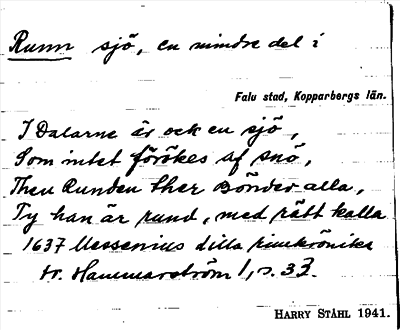 Runn sjö, en mindre del i
Falu stad, Kopparbergs län.
I Dalarne är ock en sjö,
Som intet förökes af snö,
Then Runden ther Bönder alla,
Ty han är rund, med rätt kalla
1637 Messenius dilla rimkrönika
tr. Hammarström 1, s. 33.
HARRY STÅHL 1941.